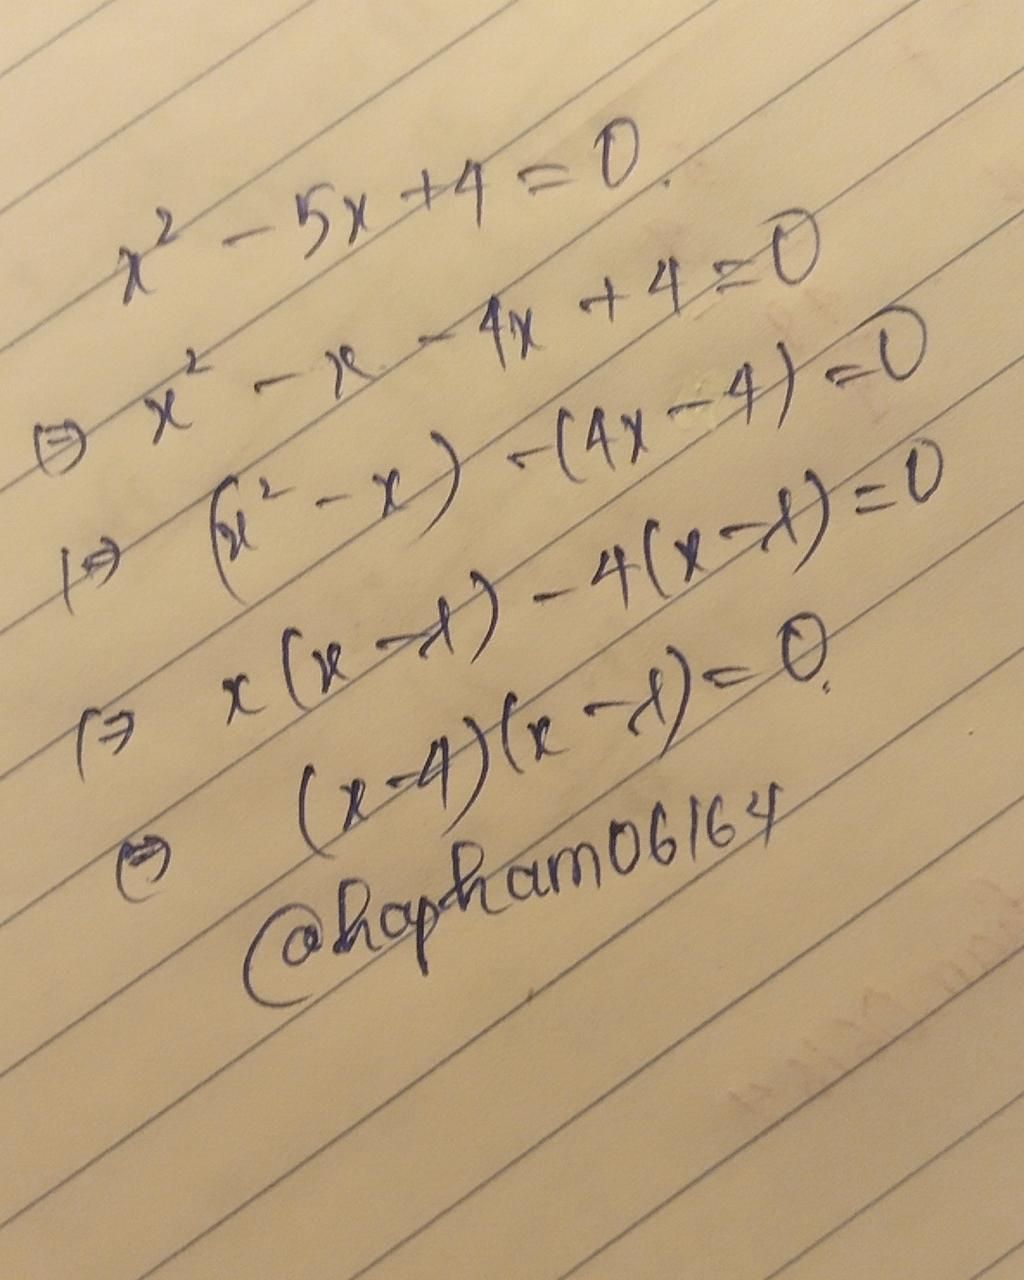 x² - 5x + 4 = 0.
⇔ x² - x - 4x + 4 = 0
⇔ (x² - x) - (4x - 4) = 0
⇔ x(x - 1) - 4(x - 1) = 0
⇔ (x - 4)(x - 1) = 0.
@hapham06164